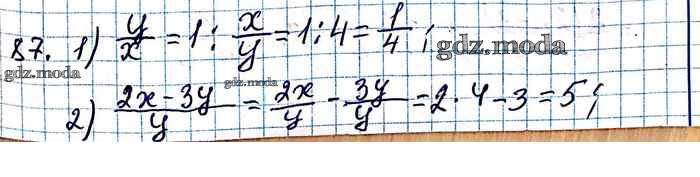 87. 1) y/x = 1 : x/y = 1 : 4 = 1/4 ; gdz.moda
gdz.moda gdz.moda
2) (2x - 3y)/y = 2x/y - 3y/y = 2 · 4 - 3 = 5 ;
gdz.moda